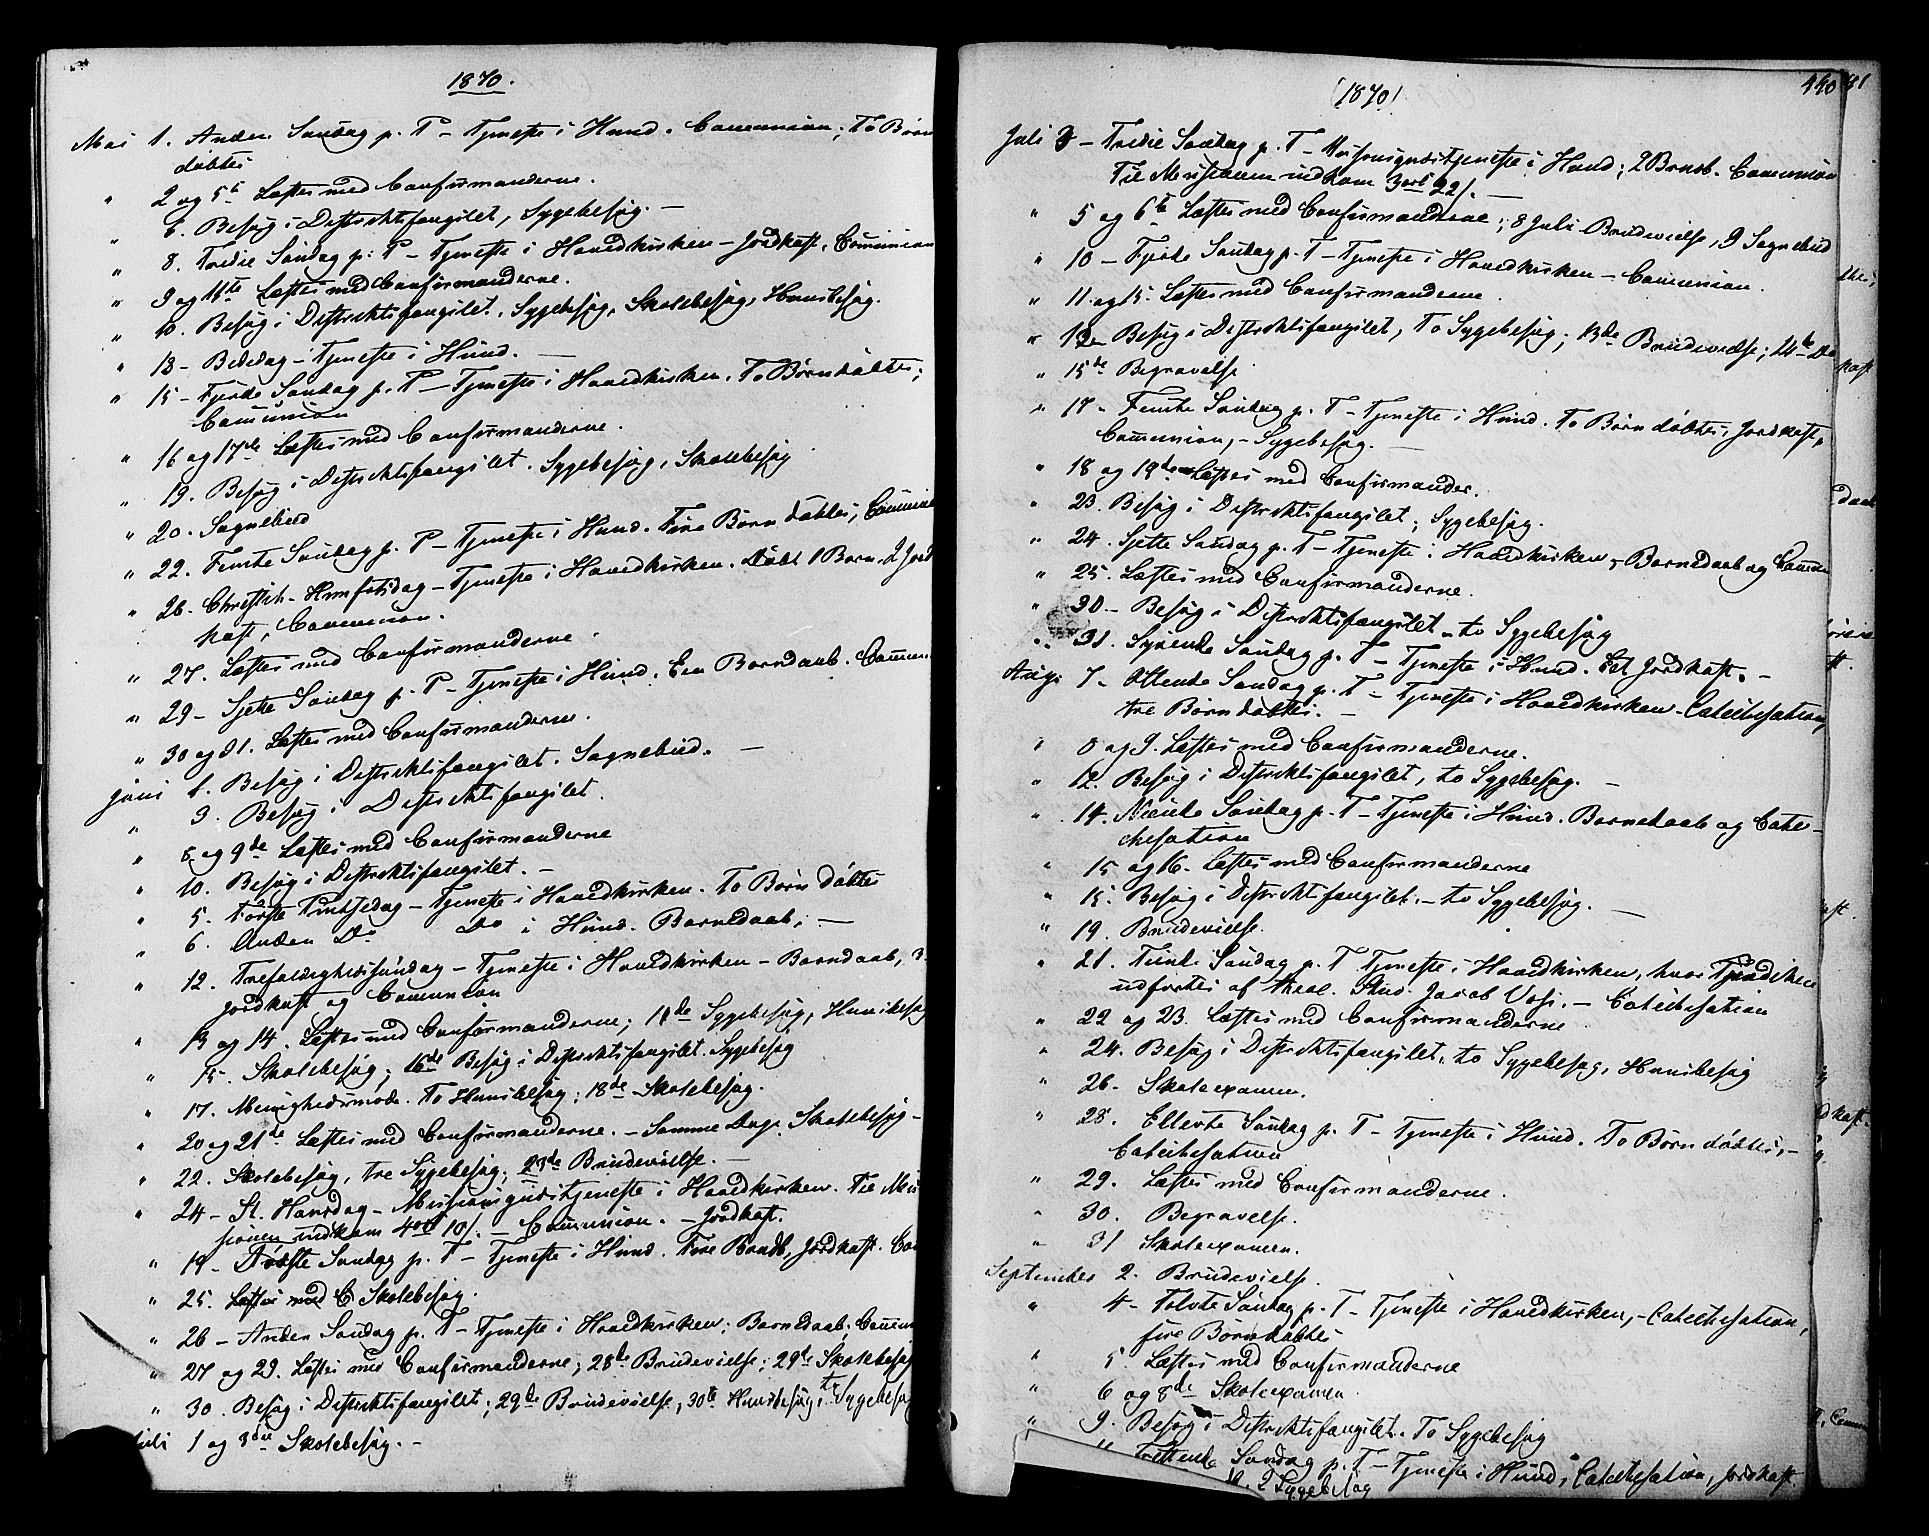 1870.
Mai 1. Anden Søndag p. P – Tjeneste i Hund. Communion; To Børn
døbtes
" 2 og 5te Læstes med Confirmanderne.
" 6. Besøg i Distriktsfængslet, Sygebesøg. –
" 8. Tredie Søndag p. P – Tjeneste i Hovedkirken – Jordkast, Communion
" 9 og 11te Læstes med Confirmanderne.
" 10. Besøg i Distriktsfængslet, Sygebesøg, Skolebesøg, Huusbesøg.
" 13 – Bededag – Tjeneste i Hund. –
" 15 – Fjerde Søndag p. P – Tjeneste i Hovedkirken. To Børn døbtes;
Communion
" 16 og 17de Læstes med Confirmanderne.
" 19. Besøg i Distriktsfængslet. Sygebesøg, Skolebesøg
" 20. Sognebud
" 22. Femte Søndag p. P – Tjeneste i Hund. Fire Børn døbtes,
" 26. Christi Himfartsdag – Tjeneste i Hovedkirken. Døbt 1 Barn. 2 Jord
kast, Communion.
" 27. Læstes med Confirmanderne.
" 29 – Sjette Søndag p. P – Tjeneste i Hund. Een Barndaab.
" 30 og 31. Læstes med Confirmanderne.
Juni 1. Besøg i Distriktsfængslet. Sognebud. –
" 3. Besøg i Distriktsfængslet.
" 8 og 9de Læstes med Confirmanderne
" 10. Besøg i Distriktsfængslet. –
" 5. Første Pintsedag – Tjeneste i Hovedkirken. To Børn døbtes
" 6. Anden Do Do i Hund. Barnedaab, –
" 12. Trefoldighedssøndag – Tjeneste i Hovedkirken – Barndaab, 3
Jordkast og Communion
" 13 og 14. Læstes med Confirmanderne; Sygebesøg, Huusbesøg
" 15. Skolebesøg; 16de Besøg i Distriktsfængslet. Sygebesøg
" 17. Menighedsmøde. To Huusbesøg; 18de Skolebesøg.
" 20 og 21de Læstes med Confirmanderne. – Samme Dage Skolebesøg –
" 22. Skolebesøg, tre Sygebesøg; 23de Brudevielse. –
" 24 – St. Hansdag – Missionsgudstjeneste i Hovedkirken. Til Mis
sionen indkom 4 ort 10/. – Communion. – Jordkast.
" 19 – Første Søndag p. T – Tjeneste i Hund. Fire Barndb, Jordkast.
" 25. Læstes med C Skolebesøg.
" 26 – Anden Søndag p. T – Tjeneste i Hovedkirken; Barnedaab,
" 27 og 29. Læstes med Confirmanderne; 28de Brudevielse; 29de Skolebesøg
" 30. Besøg i Distriktsfængslet; 29de Brudevielse, 30te Huusbesøg, to Sygebesøg
Juli 1 og Skolebesøg. –
1870!
440
Juli 3 – Tredie Søndag p. T – Missionsgudstjeneste i Hund; 2 Barnb. Communion
Til Missionen indkom 3 ort 22/. –
" 5 og 6te Læstes med Confirmanderne; 8 Juli Brudevielse, 9 Sognebud
" 10 – Fjerde Søndag p. T – Tjeneste i Hovedkirken – Communion.
" 11. og 15. Læstes med Confirmanderne.
" 12 – Besøg i Distriktsfængslet, To Sygebesøg; 13de Brudevielse; 14de
" 15de Begravelse
" 17 – Femte Søndag p. T – Tjeneste i Hund. To Børn døbtes, Jordkast,
Communion, – Sygebesøg. –
" 18 og 19de Læstes med Confirmander.
" 23. Besøg i Distriktsfængslet; Sygebesøg.
" 24. Sjette Søndag p. T – Tjeneste i Hovedkirken – Barnedaab og
" 25. Læstes med Confirmanderne.
" 30 – Besøg i Distriktsfængslet – to Sygebesøg
" 31. Syvende Søndag p. T – Tjeneste i Hund. Et Jordkast. –
Aug. 7 – Ottende Søndag p. T – Tjeneste i Hovedkirken – Catechisation,
tre Børn døbtes. –
" 8 og 9. Læstes med Confirmanderne.
" 12. Besøg i Distriktsfængslet, to Sygebesøg. –
" 14. Niende Søndag p. T – Tjeneste i Hund. Barnedaab og Cate–
chisation
" 15 og 16. Læstes med Confirmanderne
" 15. Besøg i Distriktsfængslet. – to Sygebesøg. –
" 19. Brudevielse.
" 21. Tiende Søndag p. T Tjeneste i Hovedkirken, hvor
udførtes af theol. Stud. Jacob – Catechisation
" 22 og 23. Læstes med Confirmanderne
" 24. Besøg i Distriktsfængslet, to Sygebesøg, Huusbesøg
" 26. Skoleexamen.
" 28. Ellevte Søndag p. T – Tjeneste i Hund. To Børn døbtes, –
Catechisation
" 29. Læstes med Confirmanderne.
" 30. Begravelse.
" 31 Skoleexamen.
September 2. Brudevielse.
" 4 – Tolvte Søndag p. T – Tjeneste i Hovedkirken, – Catechisation,
fire Børn døbtes
" 5. Læstes med Confirmanderne
" 6 og 8de Skoleexamen
" 9. Besøg i Distriktsfængslet. To Sygebesøg
Trettende Søndag p. T – Tjeneste i Hund, Catechisation, Jordkast.
2 Sygebesøg